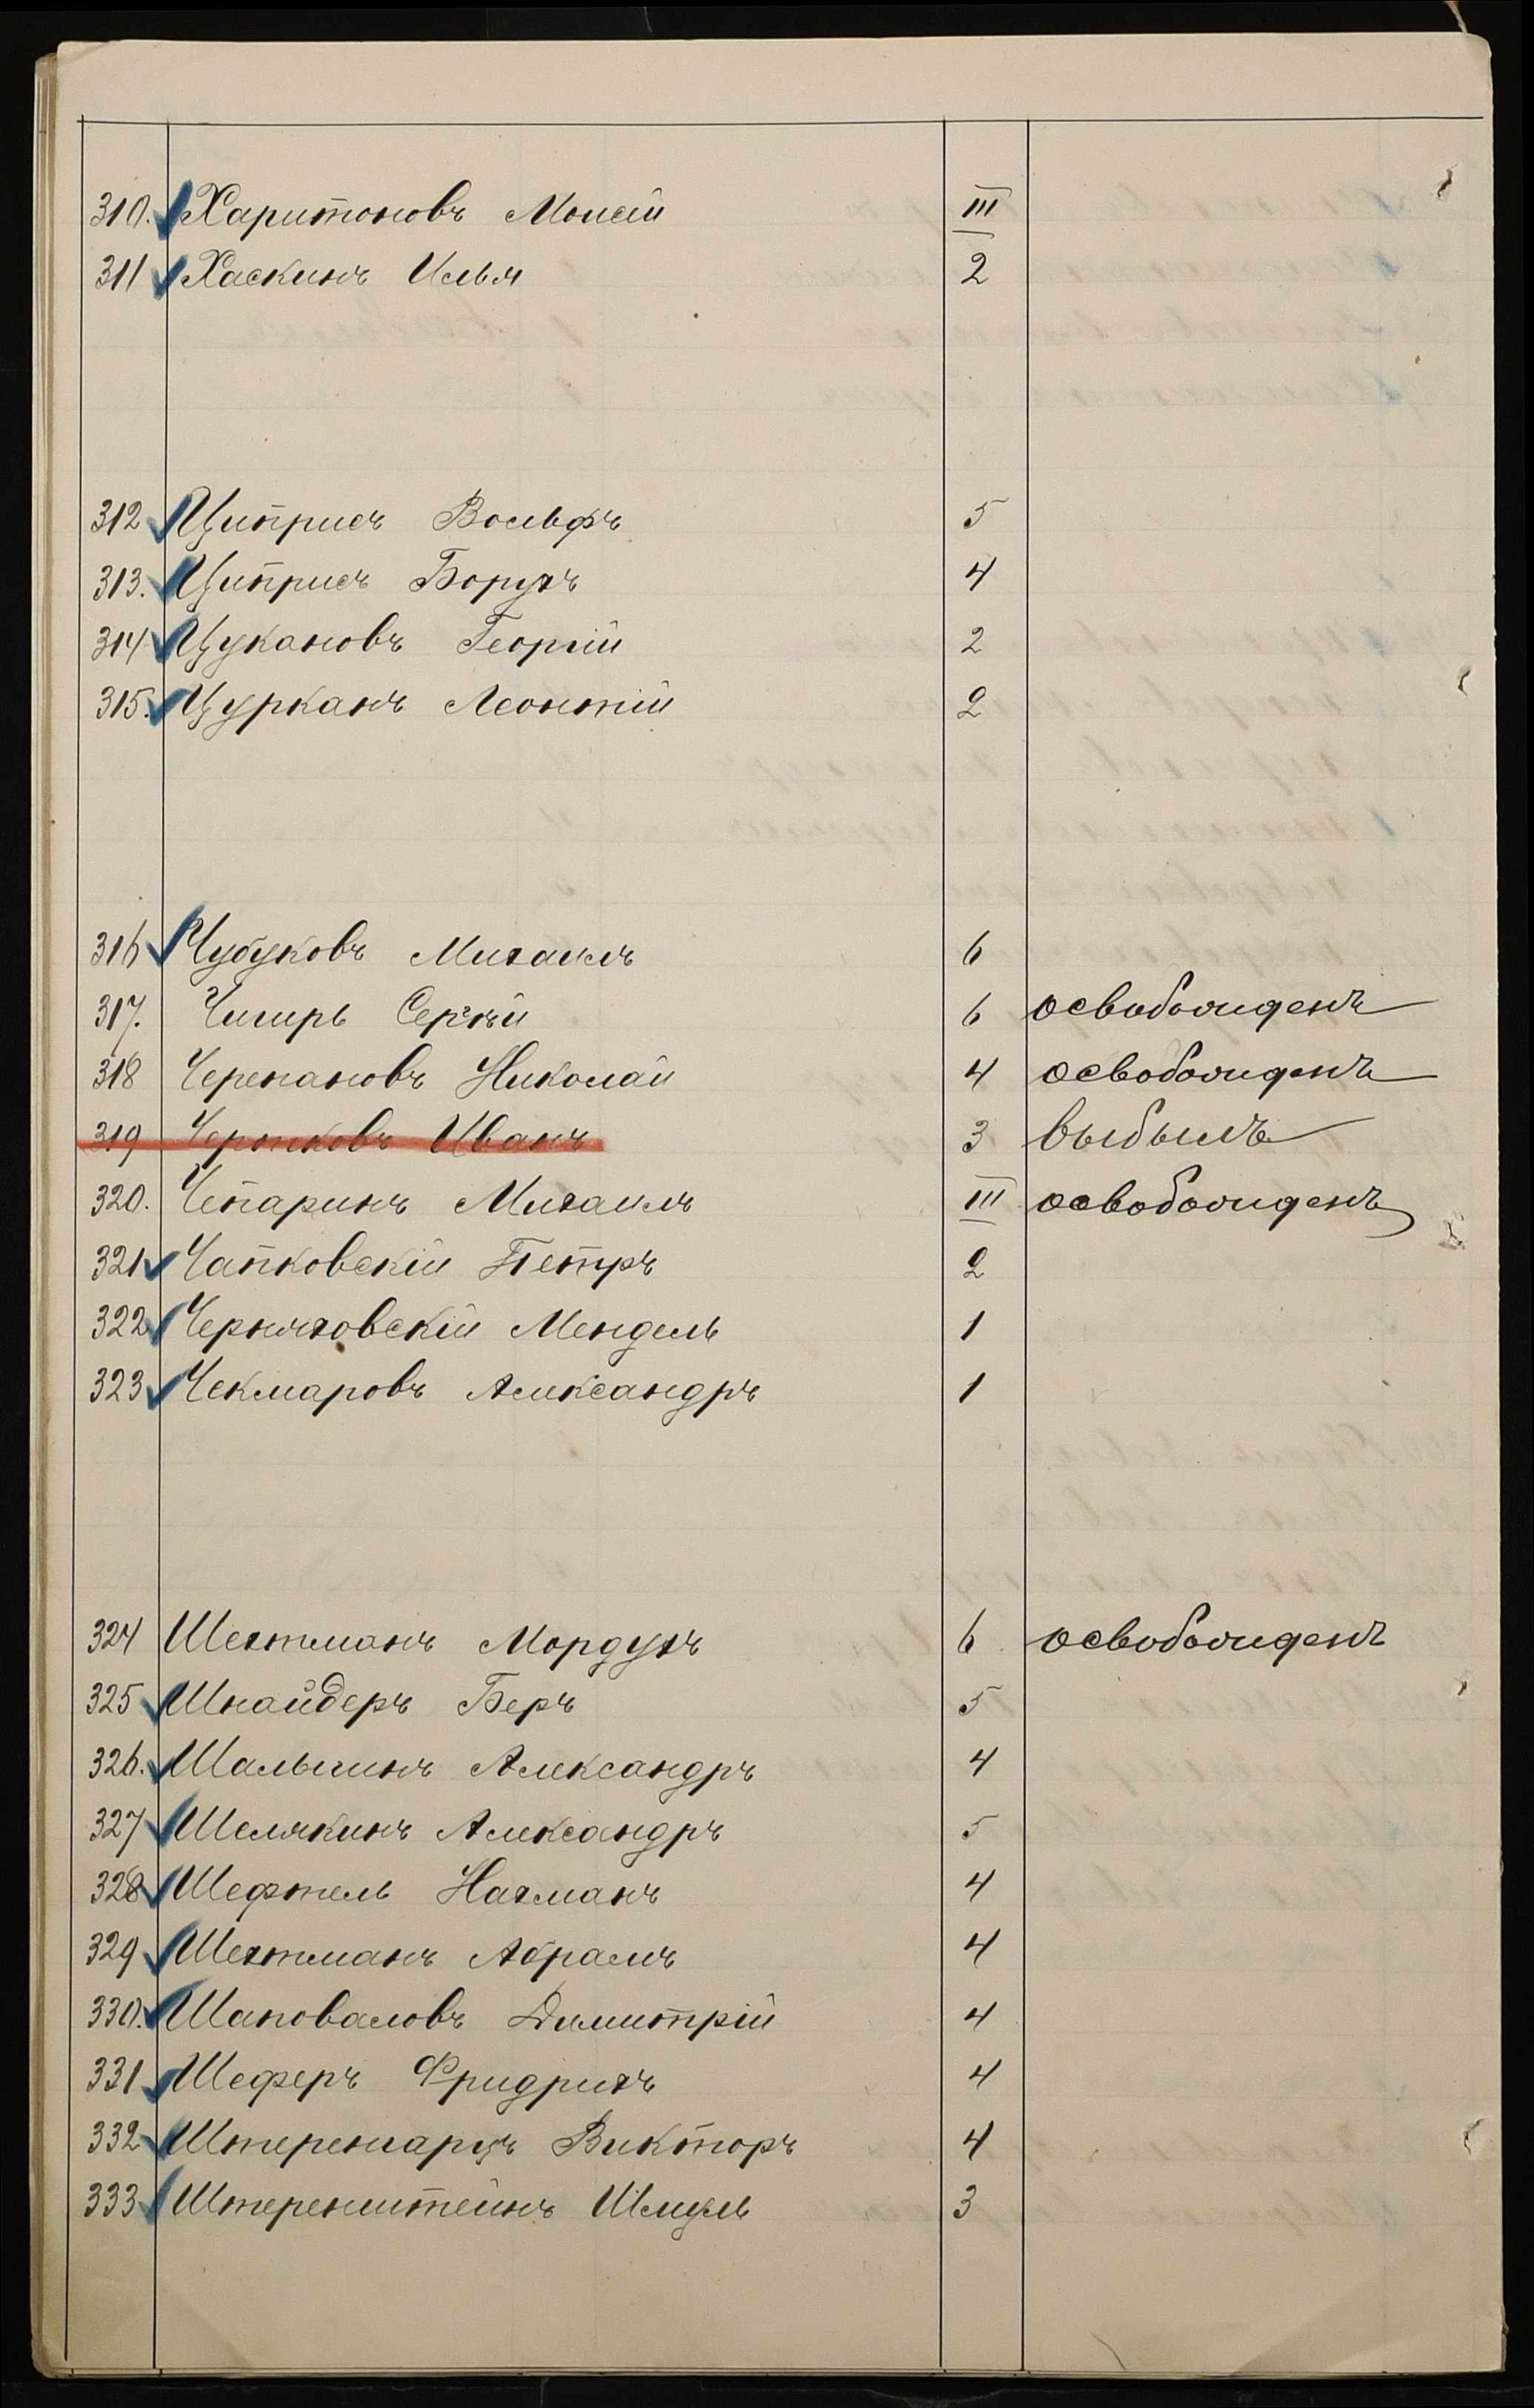 310. Харитоновъ Моисей III
311 Хаскинъ Илья 2
312 Циприсъ Вольфъ 5
313. Циприсъ Борухъ 4
314 Цукановъ Георгій 2
315. Цурканъ Леонтій 2
316 Чубуковъ Михаилъ 6
317. Чигирь Сергѣй 6 освобожденъ
318 Черепановъ Николай 4 освобожденъ
319 Чертковъ Иванъ 3 выбылъ
320. Чепаринъ Михаилъ III освобожденъ
321 Чапковскій Петръ 2
322 Черняховскій Мендель 1
323 Чекмаровъ Александръ 1
324 Шехтманъ Мордухъ 6 освобожденъ
325 Шнайдеръ Беръ 5
326. Шалыгинъ Александръ 4
327 Шелякинъ Александръ 5
328 Шефтель Нахманъ 4
329 Шехтманъ Абрамъ 4
330. Шаповаловъ Димитрій 4
331 Шеферъ Фридрихъ 4
332 Штеренгарцъ Викторъ 4
333 Штеренштейнъ Шмуль 3